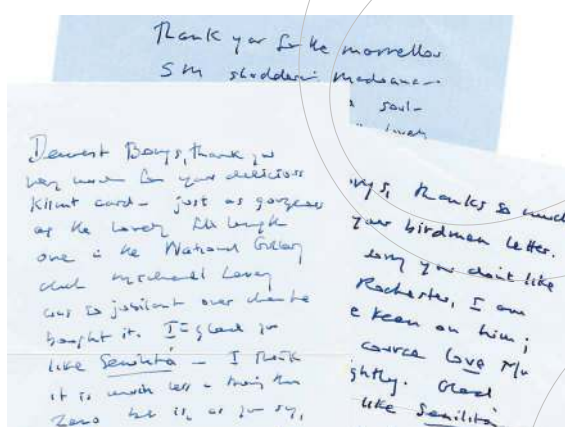 Thank you for the marvellous
S M shuddering Madonna -
soul -
Dearest Bonys, thank you
very much for your delicious
Klimt card - just as gorgeous
as the lovely full length
one in the National Gallery
that Michael Levey
was so jubilant over when he
bought it. I'm glad you
like Senilità - I think
it is much less than
Zeno but is, as you say,
thanks so much
your birdman letter.
sorry you don't like
Rochester, I am
keen on him;
course love Mr
ghtly. Glad
like Senilità